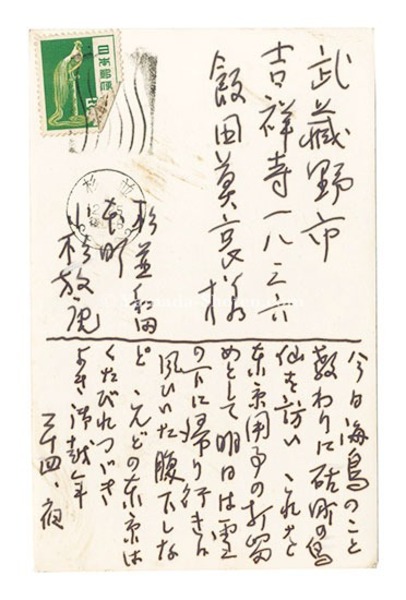 武蔵野市
吉祥寺一八三六
飯田莫哀様
杉並 和田
本町
小杉放庵
今日海鳥のこと
教わりに砧町の鳥
仙を訪い これを
東京用事の打留
めとして明日は雪
の下に帰り行き
風ひいた 腹下しな
ど こんどの東京は
くたびれつゞき
よき御越年
二十四、夜
日本郵便
杉並